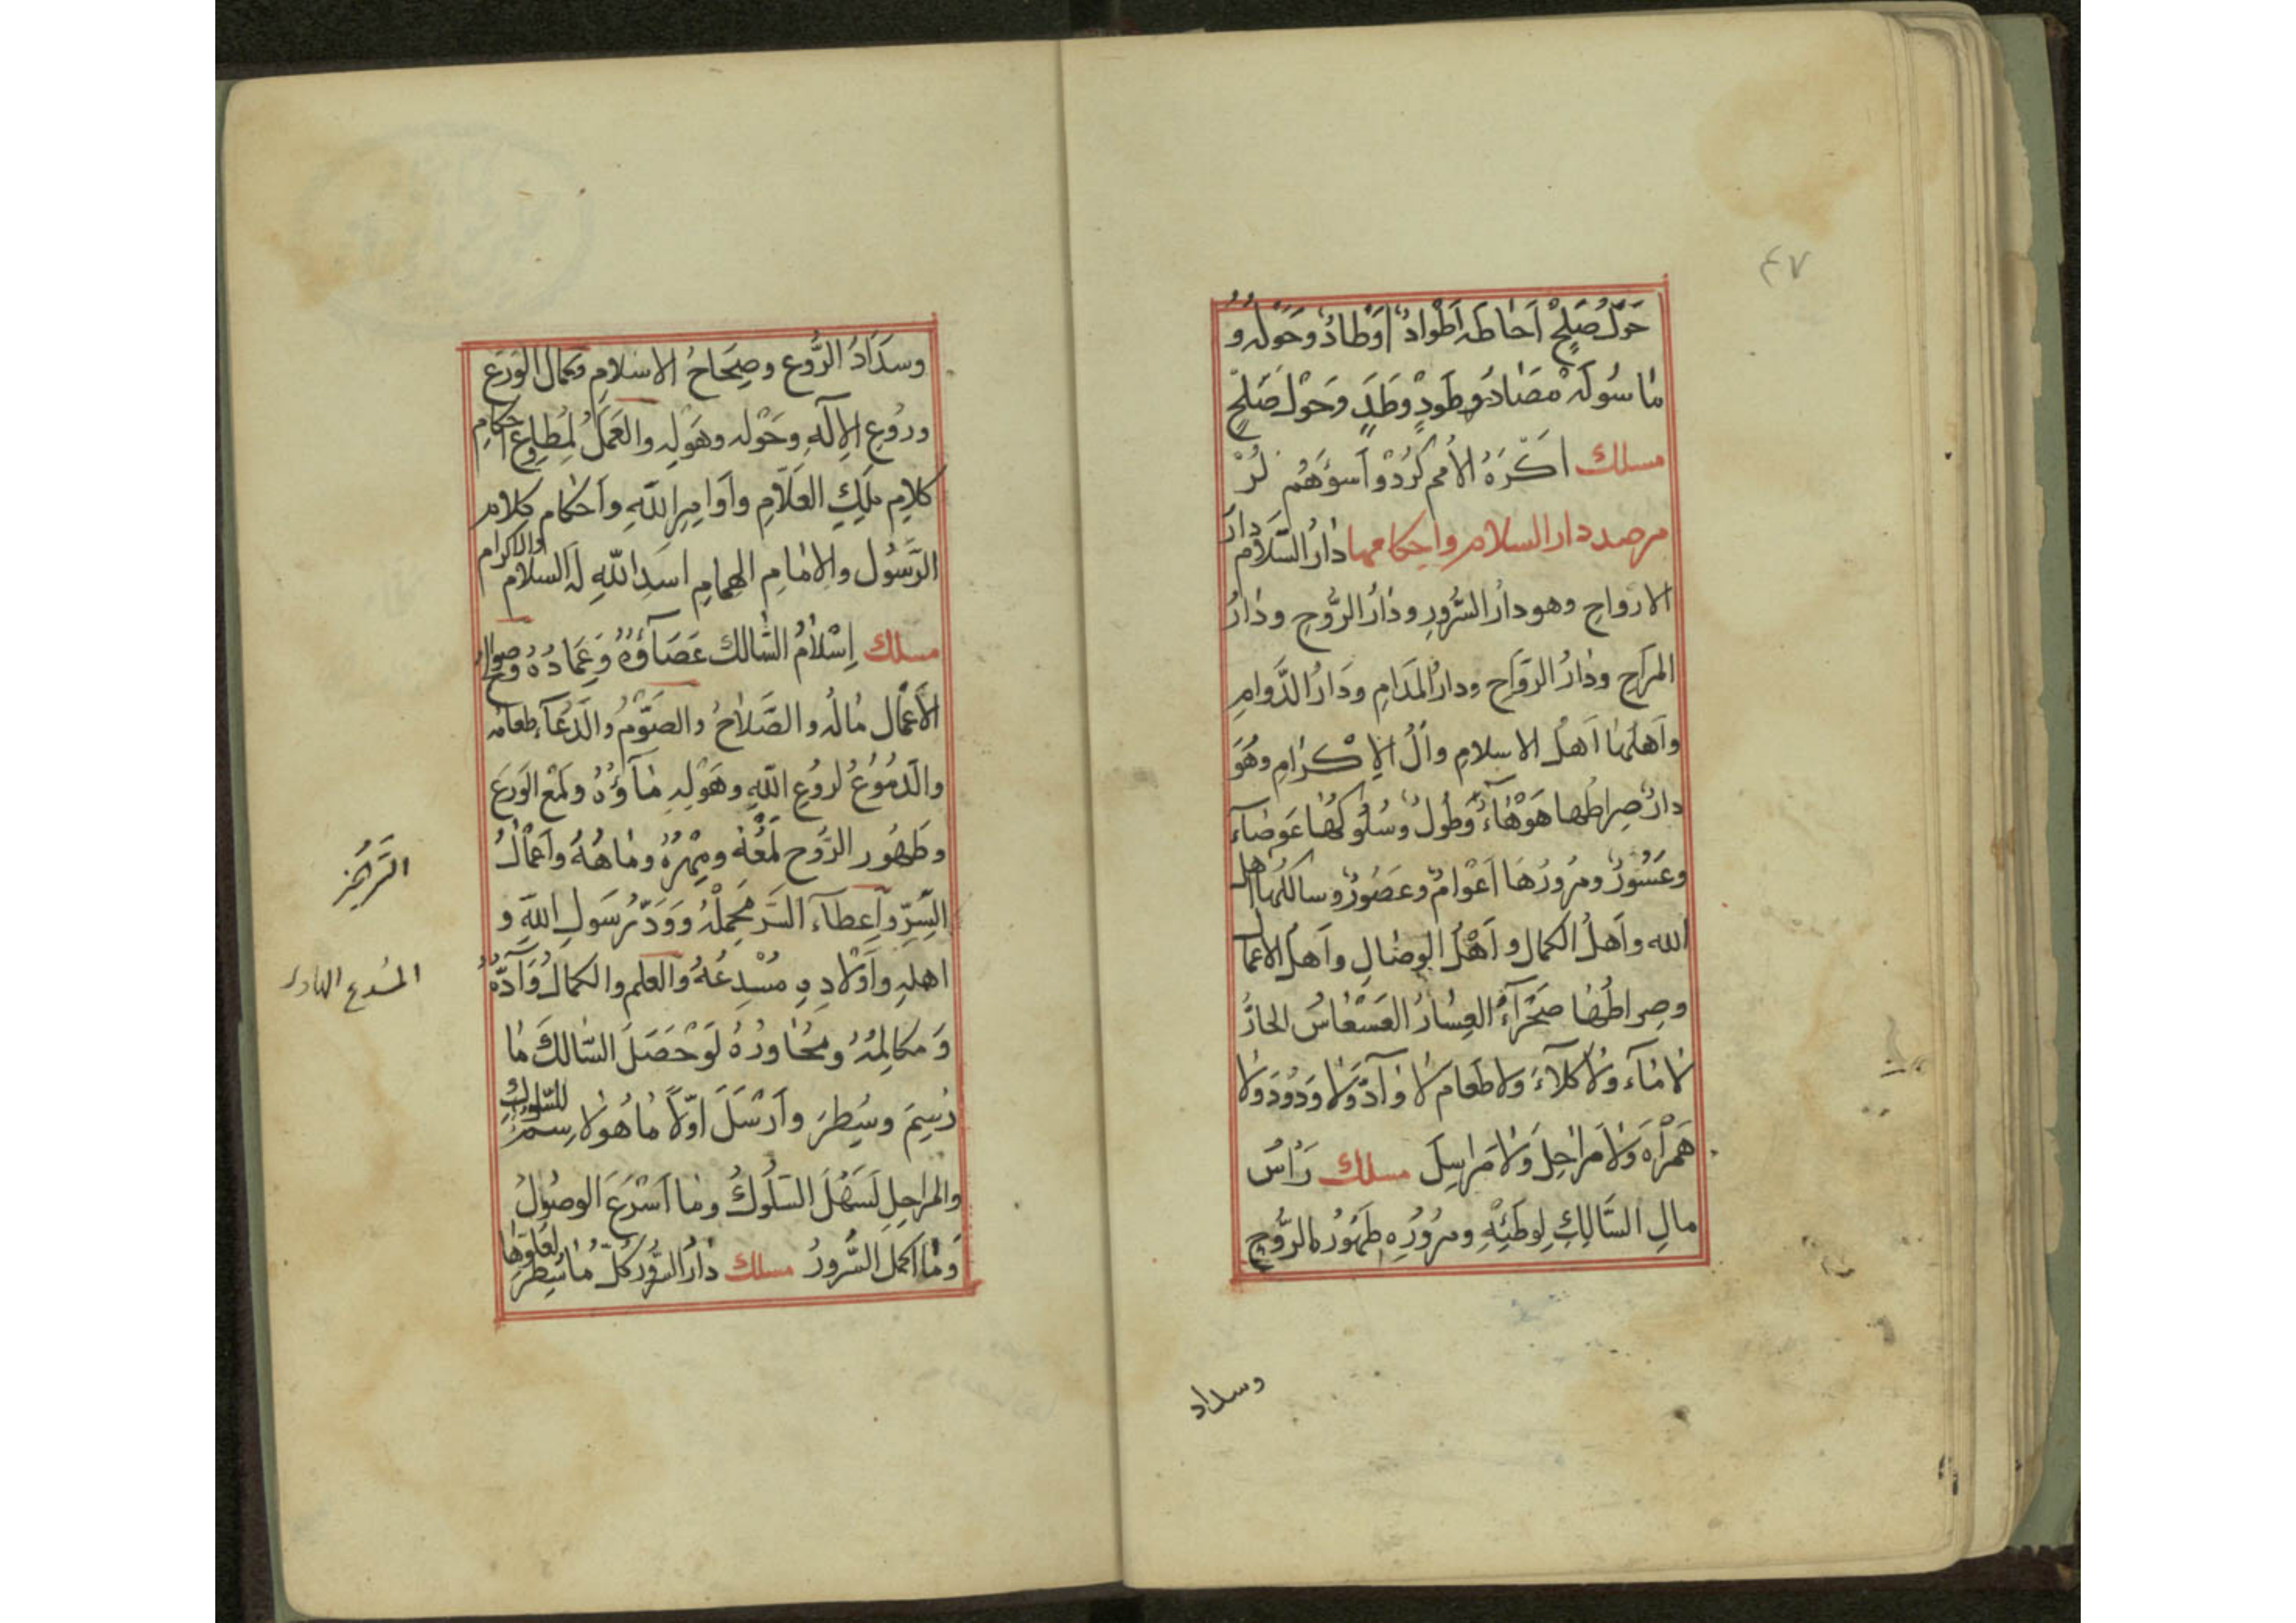 ٤٧
حَوْلَ صَلِحٍ اَحَاطَهُ اَطْوَادٌ اَوْطَادٌ وَحَوْلَهُ و
مَا سُولَهُ مَصَادٌ وَطَودٍ وَطَدٍ وَحَوْلَ صَلِحٍ
مسلك اَكْرَهُ الاُمَمِ كُرْدٌ وَاَسْوَءَهُم لُرٌ
مرصد دار السلام واحكامها دَارُ السَّلَامِ دَارُ
الارْوَاحِ وهو دارُ السُّرُورِ ودَارُ الرُّوحِ ودَارُ
المرَاحِ ودَارُ الرَوَاحِ ودارُ المَدَامِ ودَارُ الدَّوامِ
وَاَهلُهَا اَهْلُ الاسلامِ وَالُ الِاكْرَامِ وَهُوَ
دارٌ صِراطُها هَوْهَاءٌ وَطُولٌ وسُلُوكُهَا عَوصَاء
وعَسُورٌ ومُرُورُهَا اَعْوَامٌ وعَصُورٌ وسالكُها اهل
الله واَهلُ الكمالِ واَهْلُ الوِصَالِ واَهلُ الاعمال
وصِراطُهَا صَحْرَاءُ العِسَارُ العَسْعَاسُ الحَارُّ
لَا مَاء ولَا كَلَاءَ ولا طَعام لا وَآدَّ ولَا وَدُودَ ولا
هَمْرَاهَ ولَا مَرَاحِلَ ولَا مَرَاسِلَ مسلك رَاسُ
مالِ السَّالِكِ لِوَطَئِهِ ومُرُورِه طَهُورُ الرُّوحِ
وسداد
وسَدَادُ الرُّوعِ وصِحَاحُ الاسْلَامِ وكمالُ الوَرَعِ
ورُوعِ الاِلَهِ وحَوْلِه وهَوْلِهِ والعَمَلُ لِمُطاوِع احكام
كلامِ مَلِكِ العَلَّامِ واَوَامِرِ اللهِ واَحْكَام كلام
الرَسُولِ والاِمَامِ الهمامِ اسَدِ اللهِ لَهُ السلام والاكرام
مسلك اِسْلَامُ السَّالك عَصَاؤُهُ وَعِمَادُهُ وصوالح
الأعمَال مَالُه والصَّلَاحُ والصَّوْمُ والدُعَاء طعامه
والدُمُوعُ لرُوعِ اللهِ وهَوْلِهِ مَاؤُهُ ولَمْعُ الوَرَعِ
وطَهُور الرُوحِ لَمْعُهُ ومِهْرُهُ ومَاهُهُ واَعْمَالُ
السِرِّ واِعطاء السَر مَحمِلُهُ وَوَدُّ رَسُولِ اللهِ و
اهلِهِ واَوْلَادِهِ مُسْدِعُهُ والعِلم والكمالُ وَآدُّهُ
وَمكالِمُهُ ومُحَاوِرُهُ لَوْ حَصَلَ السَّالكُ مَا
رُسِمَ وسُطِرَ واَرْسَلَ اوّلًا مَا هُولَا رسم للسلوك
والمراحِلِ لَسَهُلَ السُلُوكُ ومَا اَسْرَعَ الوصُولُ
وَمَا اكملَ السُّرورُ مسلك دَارُ السُّرُورِ كُلُّ مَا سُطِرَ لعلوها
المُسدع الهادى